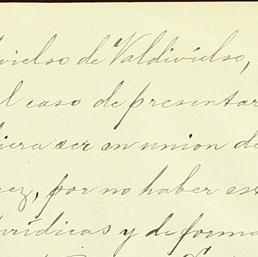 vielso de Valdivielso,
l caso de presentar
iera ser en union de
ez, por no haber est
urídicas y de forma